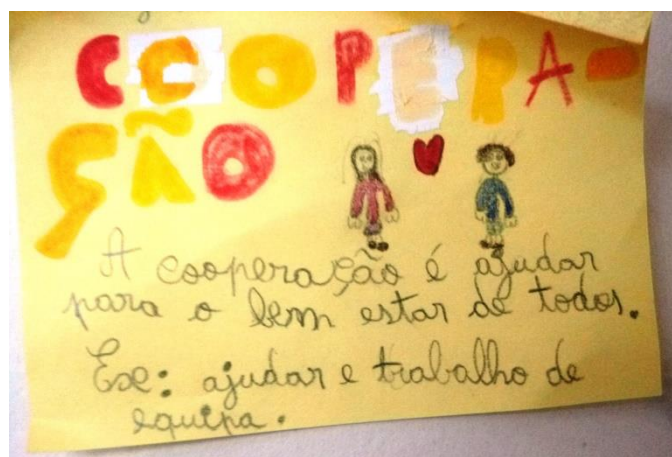 COOPERA-
ÇÃO
A cooperação é ajudar
para o bem estar de todos.
Exe: ajudar e trabalho de
equipa.